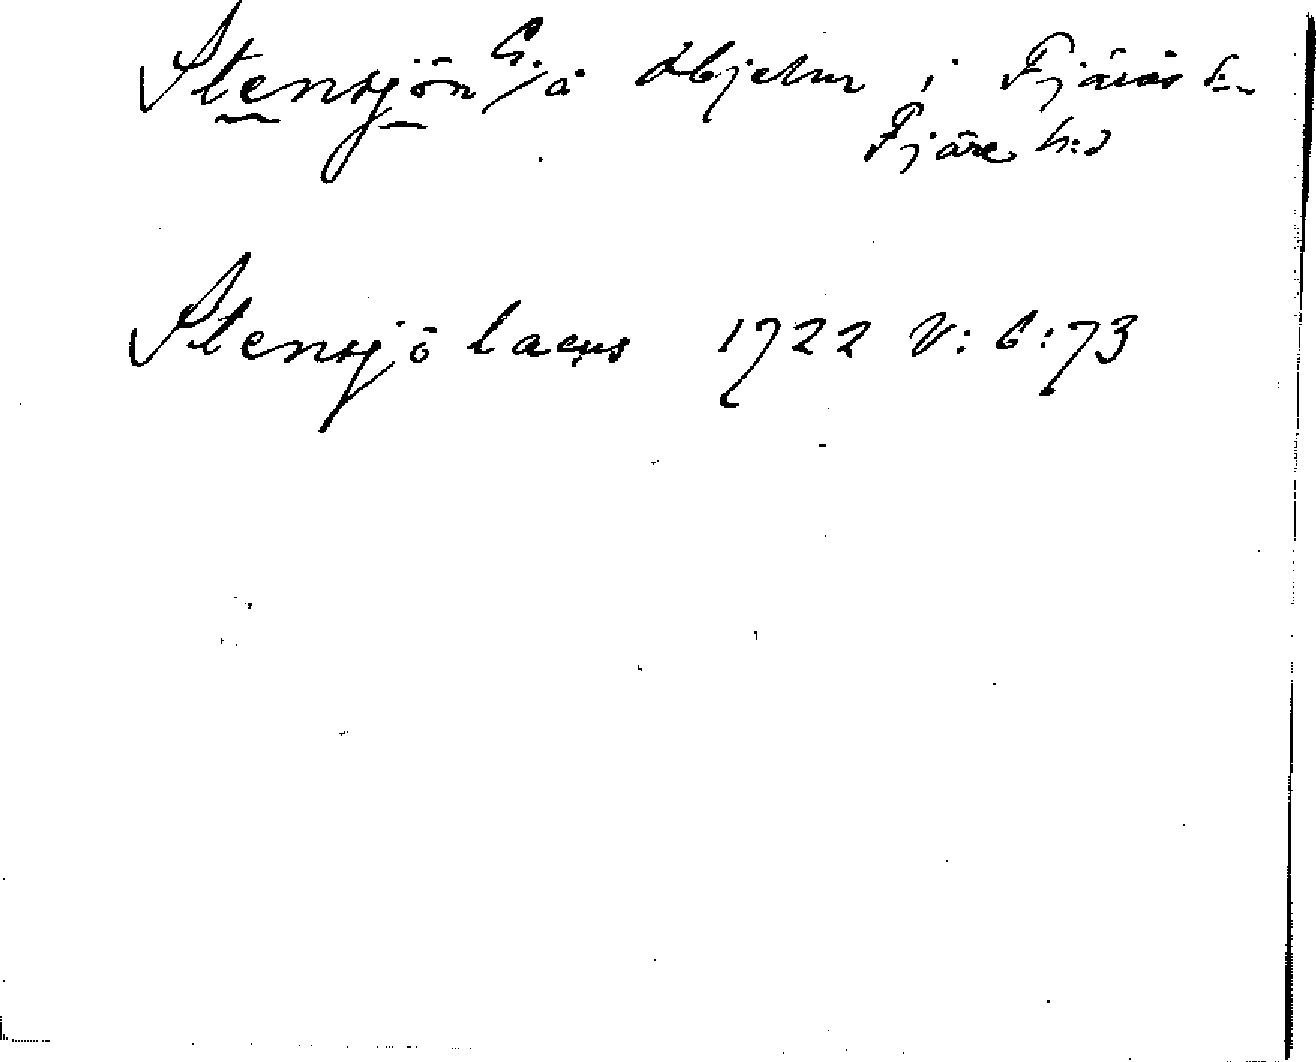 Stensjön G. / å Öbjeknr i Fjärås s:n
Fjäre h:d
Stensjö lacus 1722 V: 6: 73